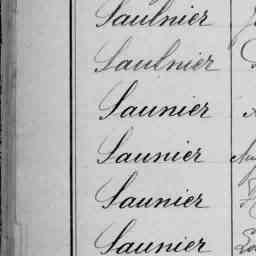 Saulnier
Saulnier
Saunier
Saunier
Saunier
Saunier